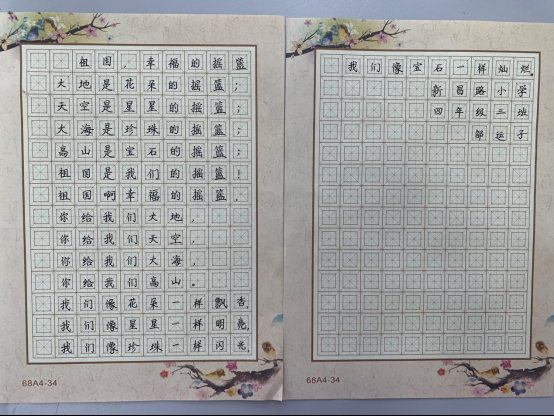 祖国，幸福的摇篮
大地是花朵的摇篮；
天空是星星的摇篮；
大海是珍珠的摇篮；
高山是宝石的摇篮；
祖国是我们的摇篮！
祖国啊幸福的摇篮，
你给我们大地，
你给我们天空，
你给我们大海，
你给我们高山。
我们像花朵一样飘香，
我们像星星一样明亮，
我们像珍珠一样闪光，
68A4-34
我们像宝石一样灿烂。
新昌路小学
四年级三班
邹运子
68A4-34